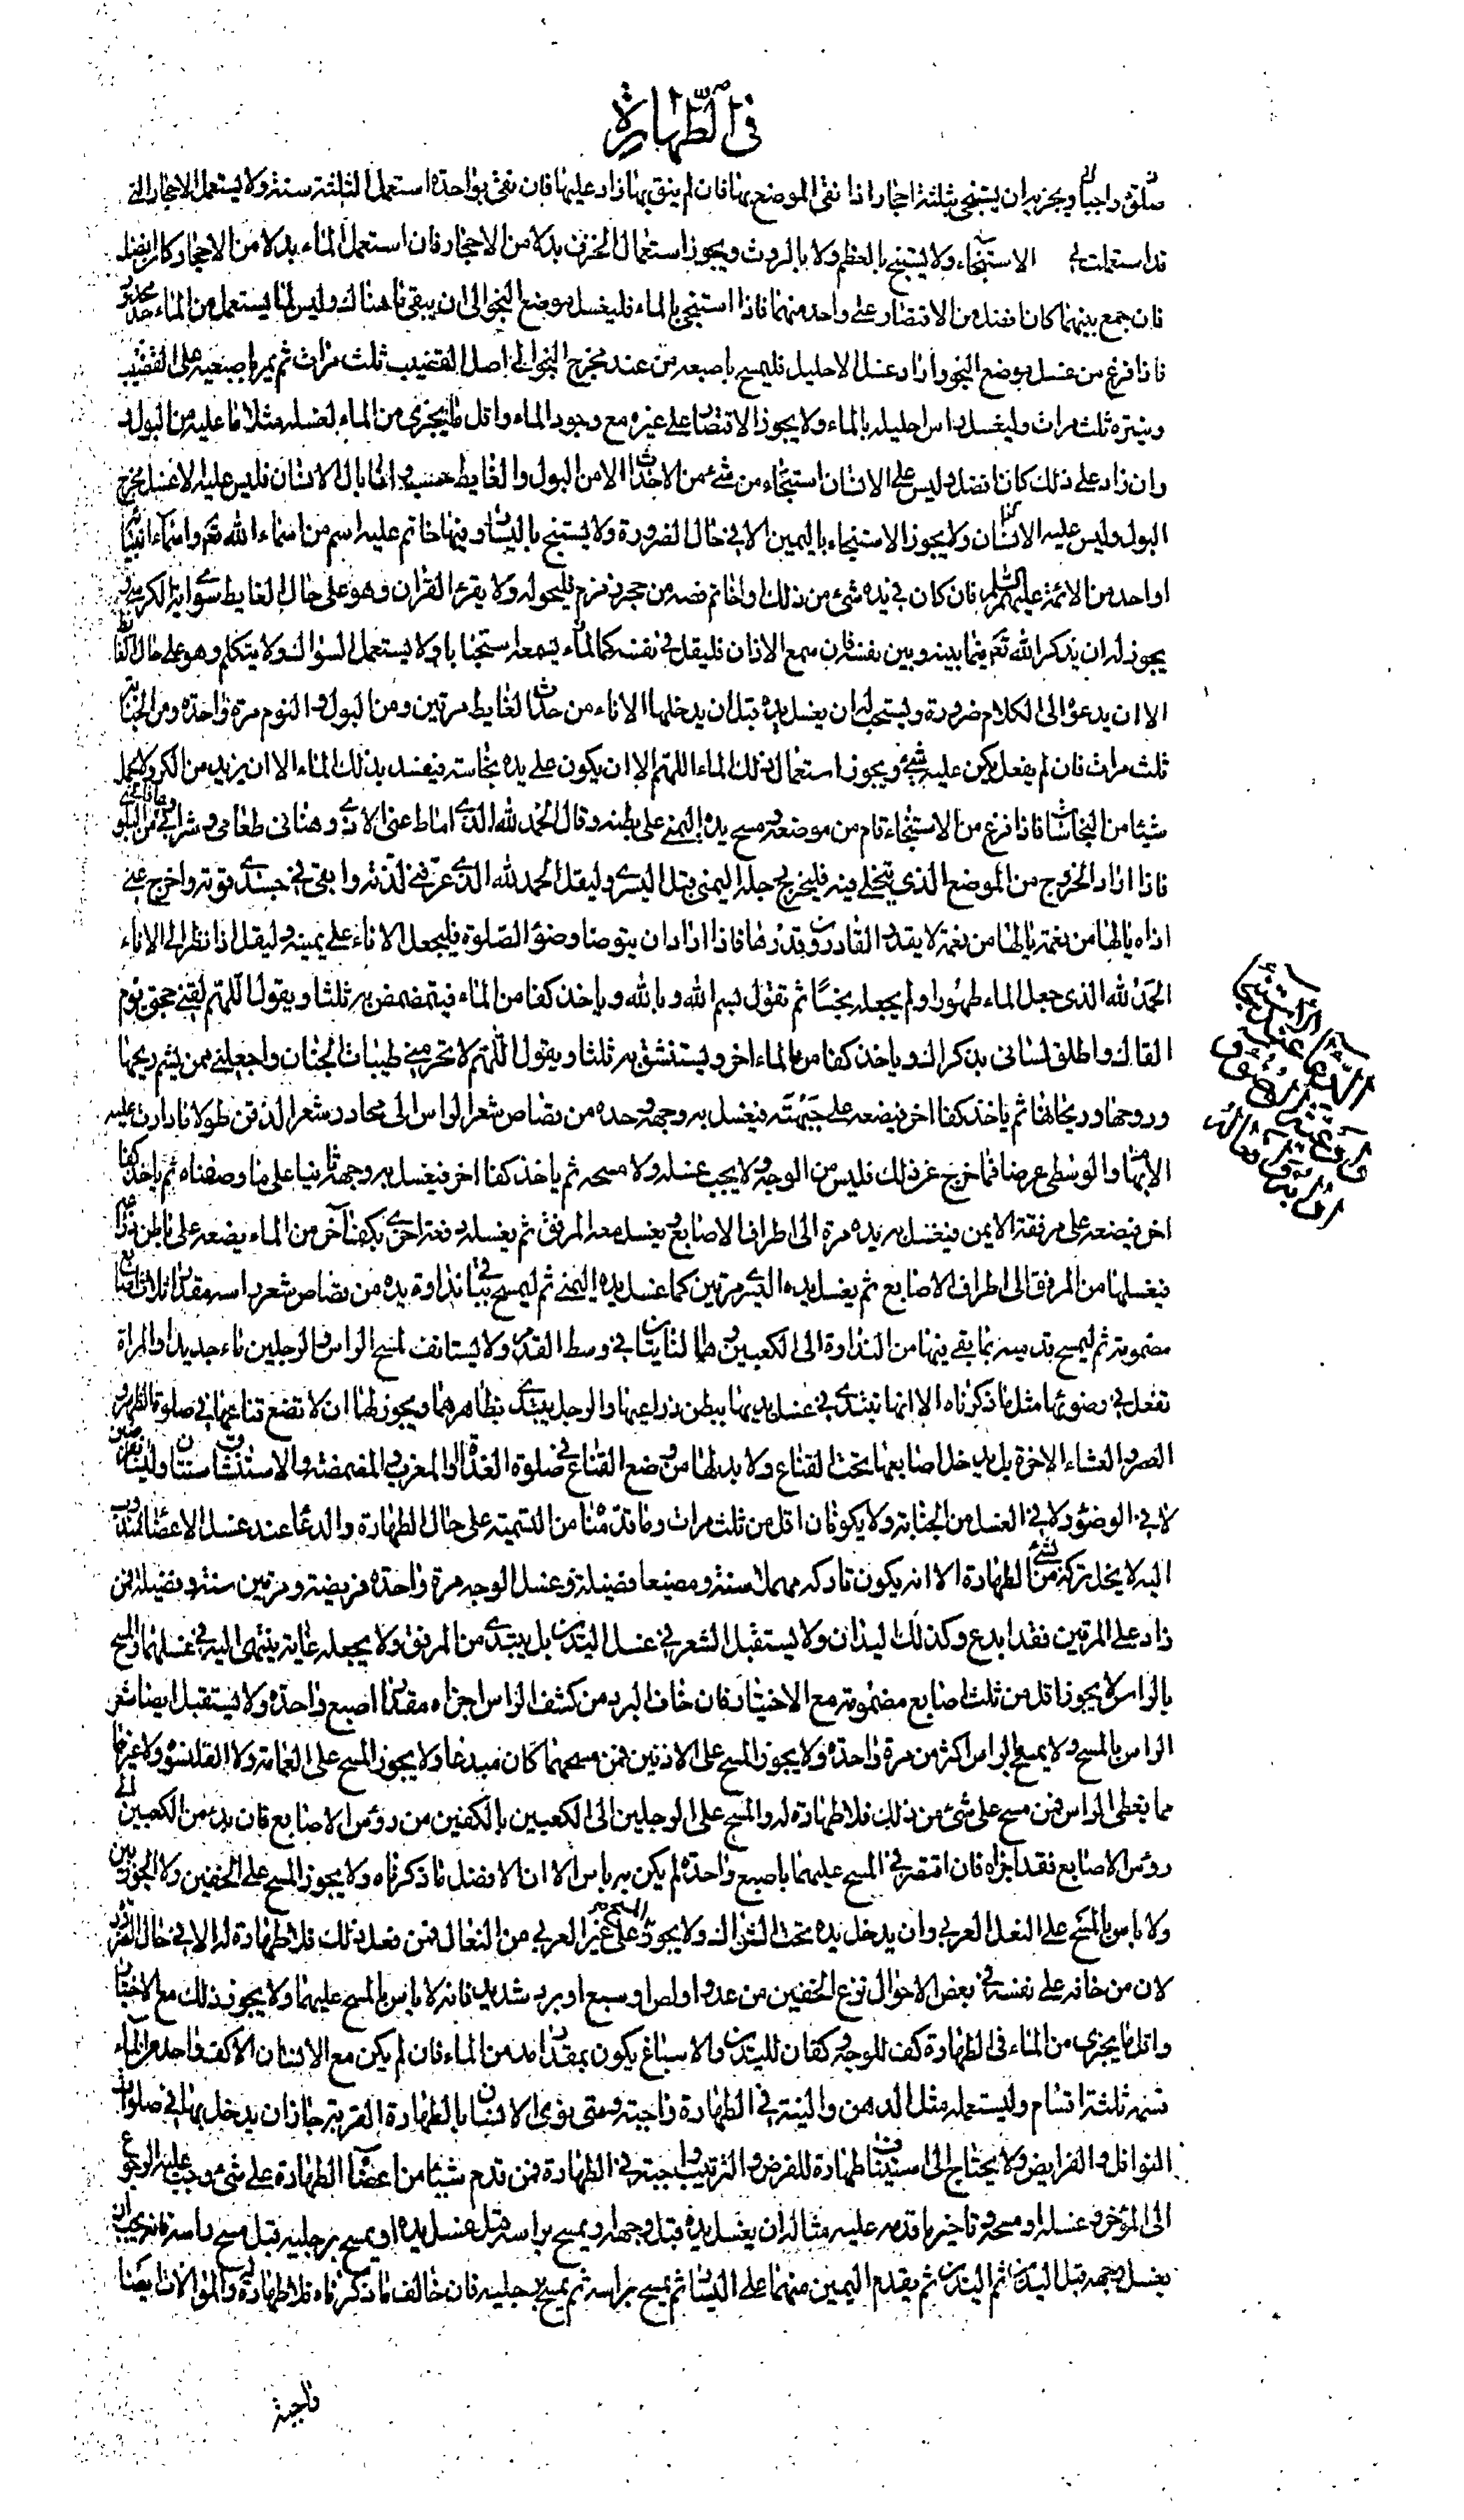 في الطهارة
صلوة واجبا ويجزيه ان يستنجي بثلثة احجار اذا نقى الموضع بها فان لم ينق بها زاد عليها فان نقى بواحدة استعمل الثلثة سنة ولا يستعمل الاحجار التي
قد استعملت في الاستنجاء ولا يستنجي بالعظم ولا بالروث ويجوز استعمال الخزف بدلا من الاحجار فان استعمل الماء بدلا من الاحجار كان افضل
فان جمع بينهما كان افضل من الاقتصار على واحد منهما فاذا استنجى بالماء فليغسل موضع النجو الى ان يبقى ما هناك وليس لما يستعمل من الماء حد محدود
فاذا فرغ من غسل موضع النجو واراد غسل الاحليل فليمسح باصبعه من عند مخرج النجو الى اصل القضيب ثلث مرات ثم يمر اصبعيه على القضيب
وينتره ثلث مرات وليغسل راس احليله بالماء ولا يجوز الاقتصار على غيره مع وجود الماء واقل ما يجزي من الماء لغسله مثلا ما عليه من البول
وان زاد على ذلك كان افضل وليس على الانسان استنجاء من شئ من الاحداث الا من البول والغايط حسب واذا بال الانسان فليس عليه الا غسل مخرج
البول وليس عليه الاستنجاء ولا يجوز الاستنجاء باليمين الا في حال الضرورة ولا يستنج باليسار وفيها خاتم عليه اسم من اسماء الله تع او اسماء انبيائه
او احد من الائمة عليهم السلم فان كان في يده شئ من ذلك او خاتم فصه من حجر زمزم فليحوله ولا يقرء القران وهو على حال الغايط سوى اية الكرسي و
يجوز له ان يذكر الله تع فيما بينه وبين نفسه فان سمع الاذان فليقل في نفسه كما يسمعه استحبابا ولا يستعمل السواك ولا يتكلم وهو على حال الغايط
الا ان يدعو الى الكلام ضرورة ويستحب له ان يغسل يده قبل ان يدخلها الاناء من حدث الغايط مرتين ومن البول والنوم مرة واحدة ومن الجنابة
ثلث مرات فان لم يفعل لم يكن عليه شئ ويجوز استعمال ذلك الماء اللهم الا ان يكون على يده نجاسة فيفسد بذلك الماء الا ان يزيد من الكر ولا يحمل
شيئا من النجاسات فاذا فرغ من الاستنجاء قام من موضعه ومسح يده اليمنى على بطنه وقال الحمد لله الذي اماط عني الاذى وهناني طعامي وشرابي وعافاني من البلوى
فاذا اراد الخروج من الموضع الذي يتخلى فيه فليخرج رجله اليمنى قبل اليسرى وليقل الحمد لله الذي عرفني لذته وابقى في جسدي قوته واخرج عني
اذاه يا لها من نعمة يا لها من نعمة لا يقدر القادرون قدرها فاذا اراد ان يتوضا وضوء الصلوة فليجعل الاناء على يمينه وليقل اذا نظر الى الاناء
الحمد لله الذي جعل الماء طهورا ولم يجعله نجسا ثم تقول بسم الله وبالله وياخذ كفا من الماء فيتمضمض به ثلثا ويقول اللهم لقني حجتي يوم
القاك واطلق لساني بذكراك وياخذ كفا من الماء اخر ويستنشق به ثلثا ويقول اللهم لا تحرمني طيبات الجنان واجعلني ممن يشم ريحها
وروحها وريحانها ثم ياخذ كفا اخر فيضعه على جبهته فيغسل به وجهه وحده من قصاص شعر الراس الى محادر شعر الذقن طولا ما دارت عليه
الابهام والوسطى عرضا فما خرج عن ذلك فليس من الوجه ولا يجب غسله ولا مسحه ثم ياخذ كفا اخر فيغسل به وجهه ثانيا على ما وصفناه ثم ياخذ كفا
اخر فيضعه على مرفقه الايمن فيغسل به يده مرة الى اطراف الاصابع ويغسل معه المرفق ثم يغسله دفعة اخرى بكف اخر من الماء يضعه على باطن ذراعه
فيغسلها من المرفق الى اطراف الاصابع ثم يغسل يده اليسرى مرتين كما غسل يده اليمنى ثم ليمسح بما بقي نداوة يده من قصاص شعر راسه مقدار ثلاث اصابع
مضمومة ثم ليمسح قدميه بما بقي فيهما من النداوة الى الكعبين وهما الناتيان في وسط القدم ولا يستانف لمسح الراس والرجلين ماء جديدا والمراة
تفعل في وضوئها مثل ما ذكرناه الا انها تبتدي في غسل يديها ببطن ذراعيها والرجل يبتدي بظاهرهما ويجوز لها ان لا تضع قناعها في صلوة الظهر و
العصر والعشاء الاخرة بل تدخل اصابعها تحت القناع ولا بد لها من وضع القناع في صلوة الغداة والمغرب والمضمضة والاستنشاق سنتان وليسا بفرضين
لا في الوضوء ولا في الغسل من الجنابة ولا يكونان اقل من ثلث مرات وما قدمنا من التسمية على حال الطهارة والدعا عند غسل الاعضاء مندوب
اليه لا يخل تركه شئ من الطهارة الا انه يكون تاركه مهملا سنة ومضيعا فضيلة وغسل الوجه مرة واحدة فريضة ومرتين سنة وفضيلة فمن
زاد على المرتين فقد ابدع وكذلك اليدان ولا يستقبل الشعر في غسل اليدين بل يبتدي من المرفق ولا يجعله غاية ينتهى اليه في غسلهما والمسح
بالراس لا يجوز اقل من ثلث اصابع مضمومة مع الاختيار فان خاف البرد من كشف الراس اجزاه مقدار اصبع واحدة ولا يستقبل ايضا شعر
الراس بالمسح ولا يمسح الراس اكثر من مرة واحدة ولا يجوز المسح على الاذنين فمن مسحهما كان مبدعا ولا يجوز المسح على العمامة ولا القلنسوة ولا غيرهما
مما يغطي الراس فمن مسح على شئ من ذلك فلا طهارة له والمسح على الرجلين الى الكعبين بالكفين من رؤس الاصابع فان بدء من الكعبين الى
رؤس الاصابع فقد اجزاه فان اقتصر في المسح عليهما باصبع واحدة لم يكن به باس الا ان الافضل ما ذكرناه ولا يجوز المسح على الخفين ولا الجوربين
ولا باس بالمسح على النعل العربي وان يدخل يده تحت الشراك ولا يجوز المسح على غير العربي من النعال فمن فعل ذلك فلا طهارة له الا في حال الضرورة
لان من خاف على نفسه في بعض الاحوال نزع الخفين من عدو او لص او سبع او برد شديد فانه لا باس بالمسح عليهما ولا يجوز ذلك مع الاختيار
واقل ما يجزي من الماء في الطهارة كف للوجه وكفان لليدين والاسباغ يكون بمقدار مد من الماء فان لم يكن مع الانسان الا كف واحد من الماء
قسمه ثلثة اقسام وليستعمله مثل الدهن والنية في الطهارة واجبة ومتى نوى الانسان بالطهارة القربة جاز ان يدخل بها في صلوات
النوافل والفرايض ولا يحتاج الى استيناف طهارة للفرض والترتيب واجب في الطهارة فمن قدم شيئا من اعضاء الطهارة على شئ وجب عليه الرجوع
الى المؤخر وغسله او مسحه وتاخير ما قدمه عليه مثاله ان يغسل يده قبل وجهه او يمسح براسه قبل غسل يده او يمسح برجليه قبل مسح راسه فانه يجب ان
يغسل وجهه قبل اليدين ثم اليدين ثم يقدم اليمين منهما على اليسار ثم يمسح براسه ثم يمسح برجليه فان خالف ما ذكرناه فلا طهارة له والموالات ايضا
واجبة